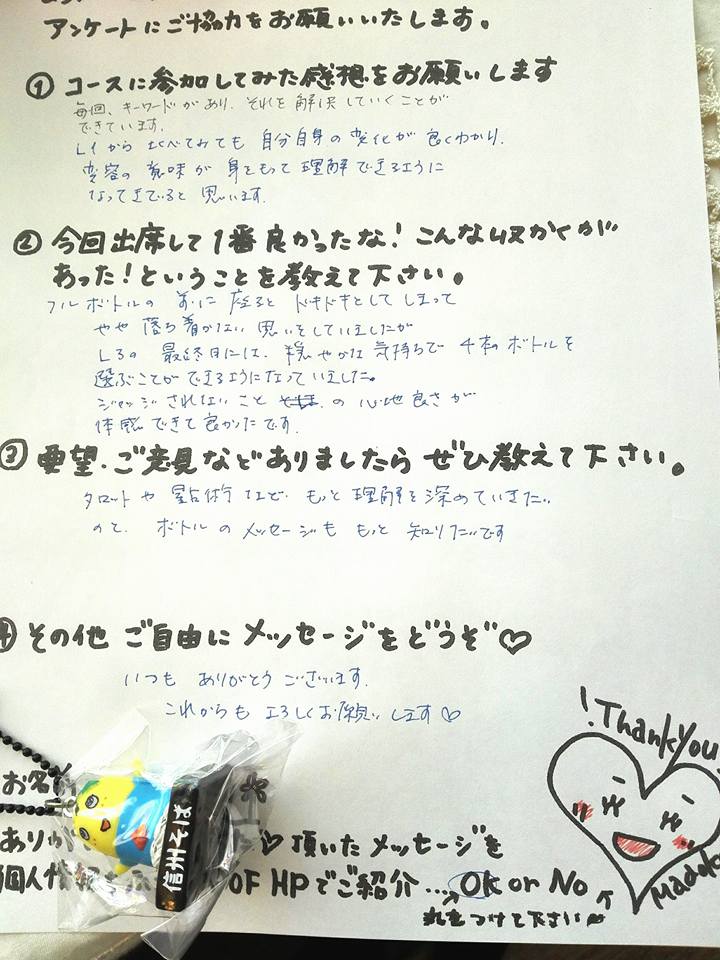 アンケートにご協力をお願いいたします。
① コースに参加してみた感想をお願いします
毎回、キーワードがあり、それを解決していくことが
できています。
L1から比べてみても 自分自身の変化が良くわかり、
変容の意味が 身をもって 理解できるように
なってきていると 思います。
② 今回出席して1番良かったな!こんな収かくが
あった!ということを教えて下さい。
フルボトルの前に座ると ドキドキとしてしまって
やや落ち着かない思いをしていましたが
L3の 最終日には、穏やかな気持ちで 4本のボトルを
選ぶことができるようになっていました。
ジャッジされないこと の心地良さが
体感できて良かったです。
③ 要望・ご意見などありましたら ぜひ教えて下さい。
タロットや 占星術など、もっと理解を深めていきたい
ので、ボトルのメッセージも もっと 知りたいです
④ その他 ご自由に メッセージをどうぞ♡
いつも ありがとうございます。
これからも よろしくお願いします♡
!Thank you
お名前
信州そば
ありが 頂いたメッセージを
個人情報を OF HPでご紹介....OK or No
Madoka
丸をつけて下さい